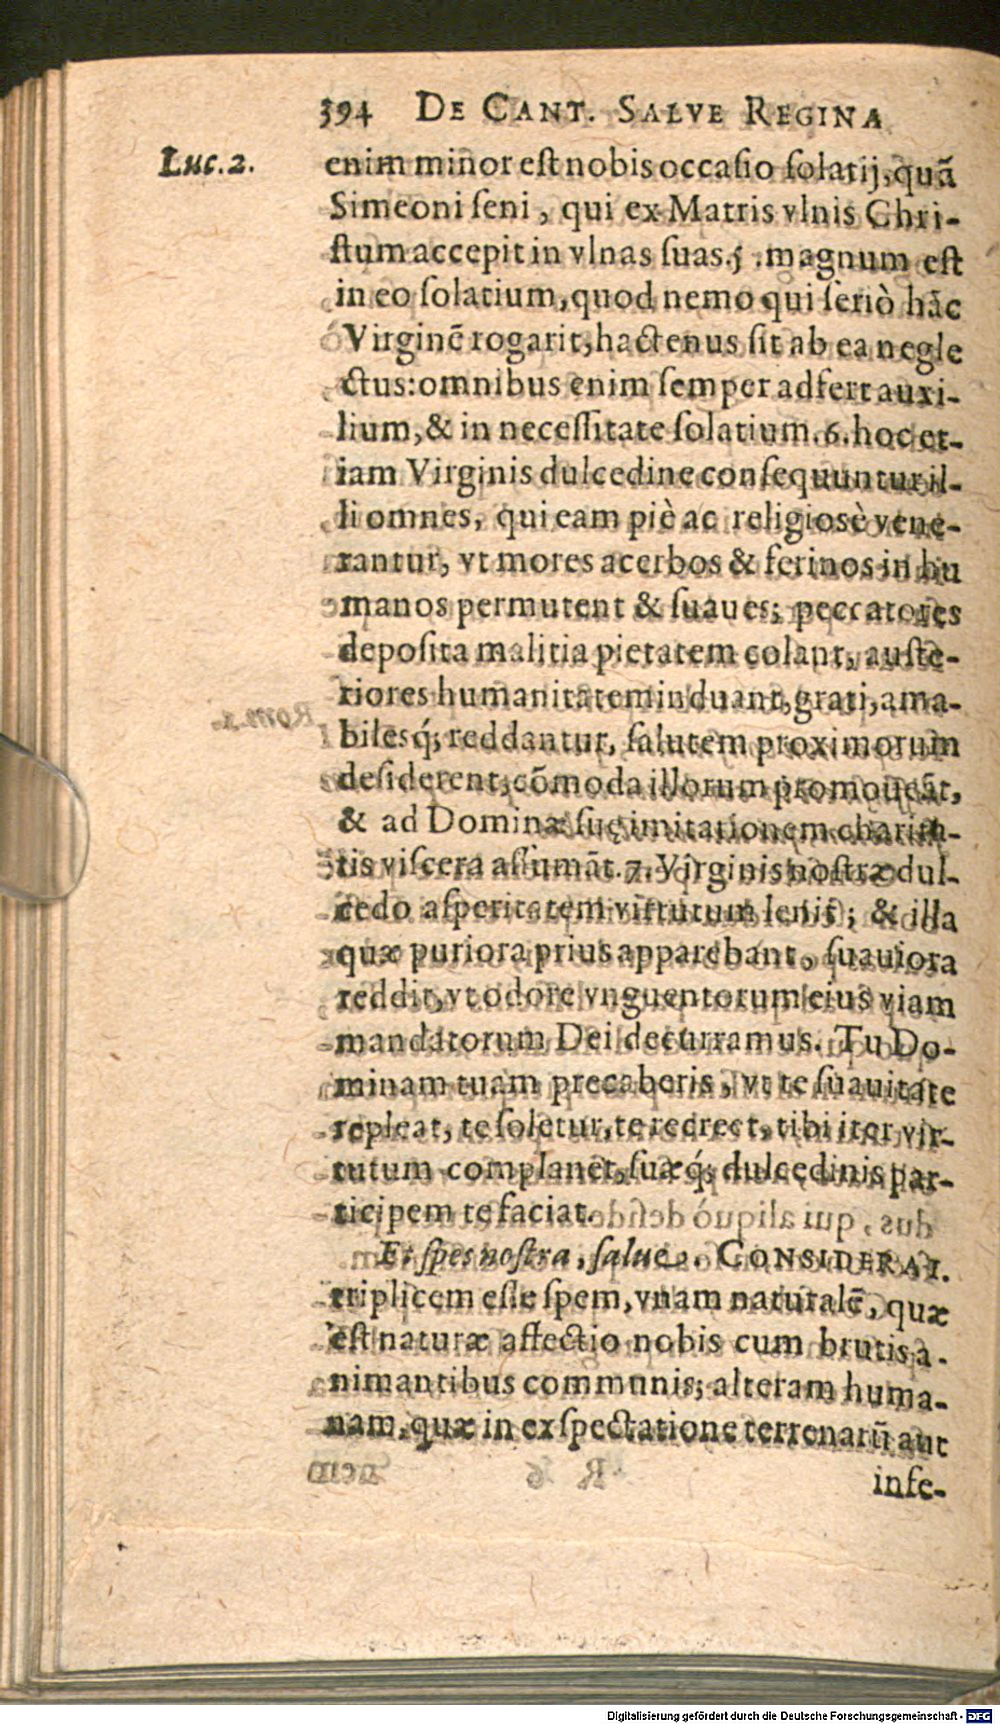 394 DE CANT. SALVE REGINA
Luc. 2.
enim minor est nobis occasio solatij, quā
Simeoni seni, qui ex Matris vlnis Chri-
stum accepit in vlnas suas. 5. magnum est
in eo solatium, quod nemo qui seriò hāc
Virginē rogarit, hactenus sit ab ea negle
ctus: omnibus enim semper adfert auxi-
lium, & in necessitate solatium. 6. hoc et-
iam Virginis dulcedine consequuntur il-
li omnes, qui eam piè ac religiosè vene-
rantur, vt mores acerbos & ferinos in hu
manos permutent & suaues; peccatores
deposita malitia pietatem colant, auste-
riores humanitatem induant, grati, ama-
bilesq́; reddantur, salutem proximorum
desiderent, cōmoda illorum promoueāt,
& ad Dominæ suę imitationem charita-
tis viscera assumāt. 7. Virginis nostræ dul-
cedo asperitatem virtutum lenit; & illa
quæ puriora prius apparebant, suauiora
reddit, vt odore vnguentorum eius viam
mandatorum Dei decurramus. Tu Do-
minam tuam precaberis, vt te suauitate
repleat, te soletur, te recreet, tibi iter vir-
tutum complanet, suæq́; dulcedinis par-
ticipem te faciat.
Et spes nostra, salue. CONSIDERA I.
triplicem esse spem, vnam naturalē, quæ
est naturæ affectio nobis cum brutis a-
nimantibus communis; alteram huma-
nam, quæ in exspectatione terrenarū aut
infe-
Digitalisierung gefördert durch die Deutsche Forschungsgemeinschaft - DFG